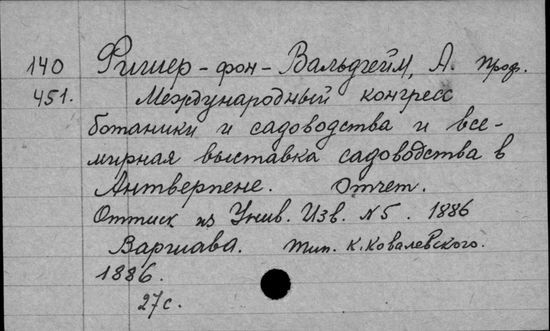 140 Фишер-фон-Вальдгейм, А. проф.
451. Международный конгресс
ботаники и садоводства и все-
мирная выставка садоводства в
Антверпене. Отчет.
Оттиск из Унив. Изв. №5. 1886
Варшава. тип. К. Ковалевского.
1886.
27 с.